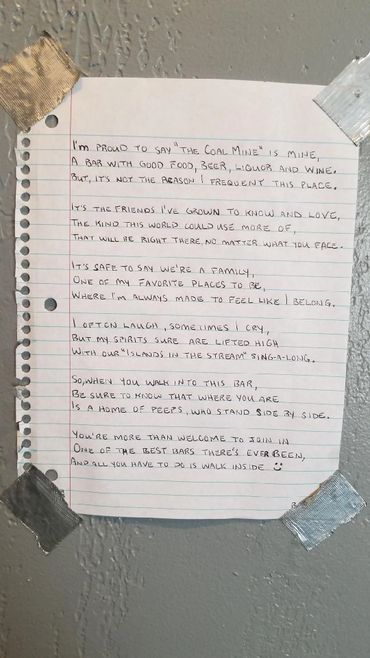 I'm proud to say "The Coal Mine" is mine,
A bar with good food, beer, liquor and wine.
But, it's not the reason I frequent this place.
It's the friends I've grown to know and love,
The kind this world could use more of,
That will be right there, no matter what you face.
It's safe to say we're a family,
One of my favorite places to be,
Where I'm always made to feel like I belong.
I often laugh, sometimes I cry,
But my spirits sure are lifted high
With our "Islands in the Stream" sing-a-long.
So, when you walk into this bar,
Be sure to know that where you are
Is a home of peeps, who stand side by side.
You're more than welcome to join in
One of the best bars there's ever been,
And all you have to do is walk inside :)